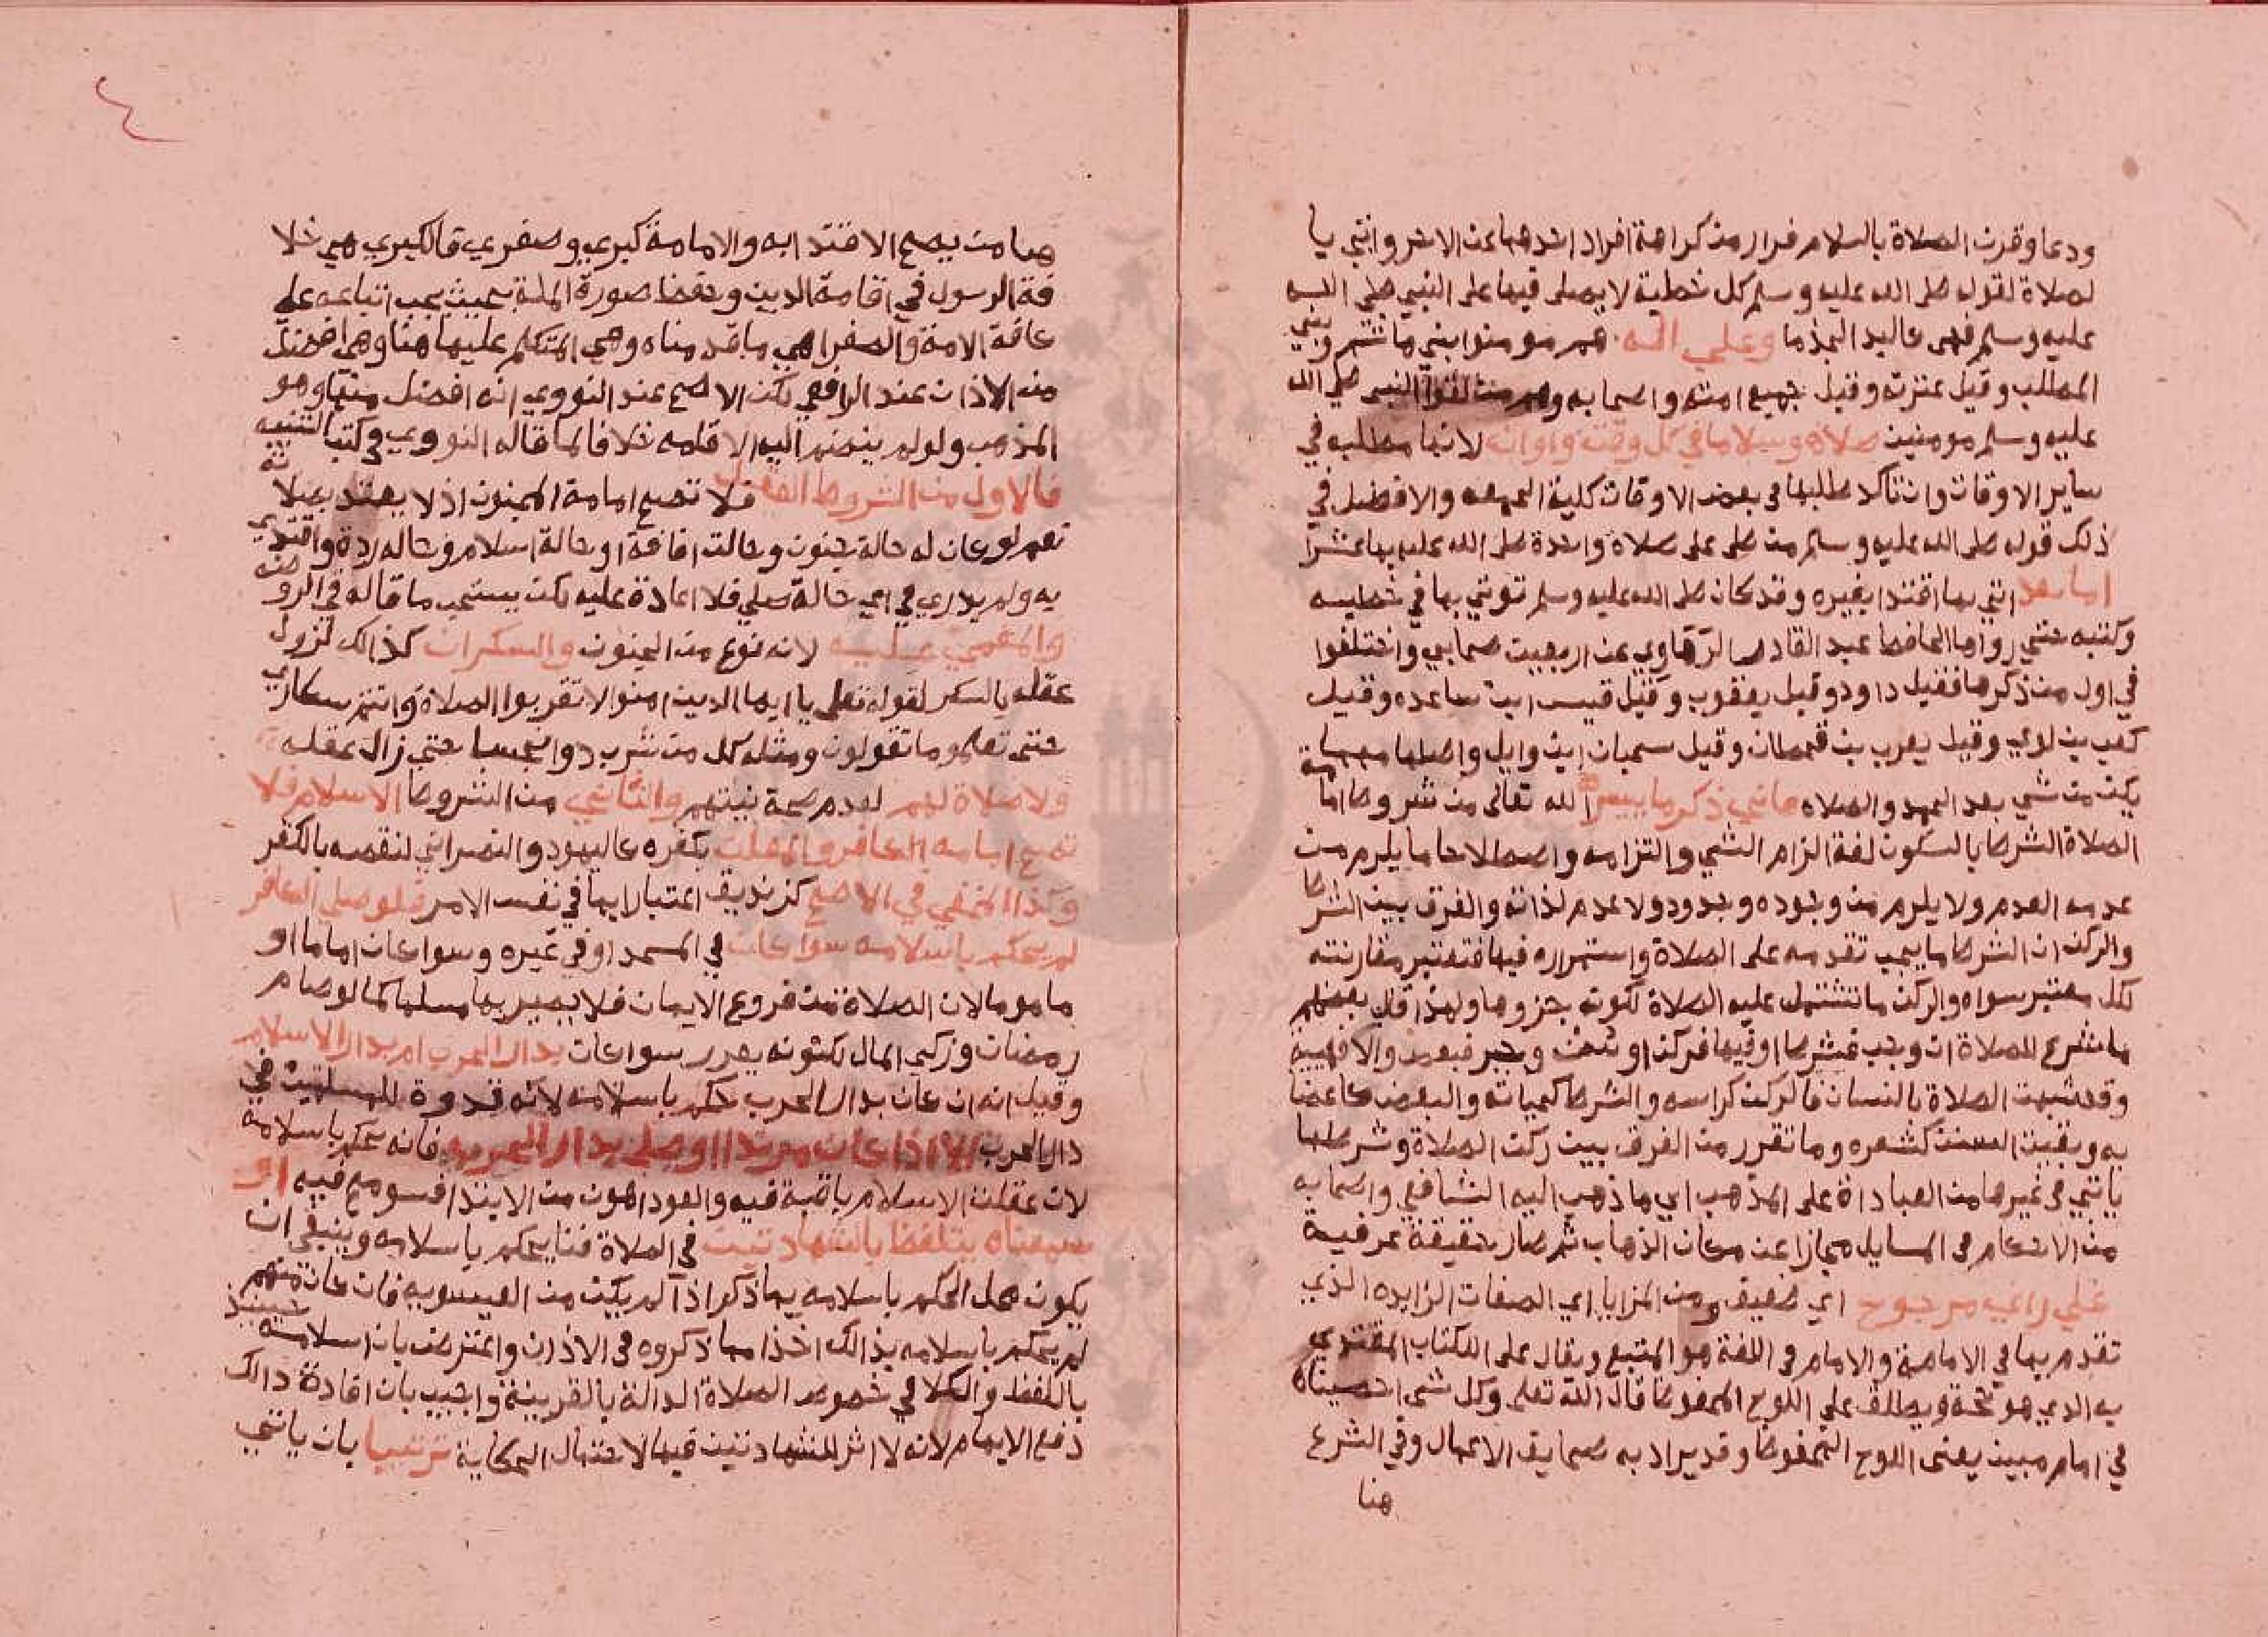 ودعا وقرن الصلاة بالسلام فرار من كراهة افراد احدهما عن الاخر واتي با
لصلاة لقوله صلى الله عليه وسلم كل خطبة لا يصلى فيها على النبي صلى الله
عليه وسلم فهى كاليد الجذما وعلي اله هم مومنوا بني هاشم وبني
المطلب وقيل عترته وقيل جميع امته واصحابه وهم من لقوا النبي صلي الله
عليه وسلم مومنين صلاة وسلاما في كل وقت واوان لانها مطلبه في
ساير الاوقات وان تاكد طلبها في بعض الاوقات كليلة الجمعه والافضل في
ذلك قوله صلى الله عليه وسلم من صلى على صلاة واحدة صلى الله عليه بها عشرا
اما بعد اتي بها اقتدا بغيره وقد كان صلى الله عليه وسلم توتي بها في خطبه
وكتبه حتي رواها الحافظ عبد القادر الرهاوي عن اربعين صحابي واختلفوا
في اول من ذكرها فقيل داود وقيل يعقوب وقيل قيس ابن ساعده وقيل
كعب بن لاي وقيل يعرب بن قحطان وقيل سحبان ابن وايل واصلها مهما
يكن من شي بعد الحمد والصلاه هاني ذكر ما يسر الله تعالى من شروط اما مة
الصلاة الشرط بالسكون لغة الزام الشي والتزامه واصطلاحا ما يلزم من
عدمه العدم ولا يلزم من وجوده وجود ولا عدم لذاته والفرق بين الشرط
والركن ان الشرط ما يجب تقدمه على الصلاة واستمراره فيها فتعتبر مقارنته
لكل معتبر سواه والركن ما تشتمل عليه الصلاة لكونه جزوها ولهذا قال بعضهم
ما شرع للصلاة ان وجب فشرط او فيها فركن او سن وجبر فبعض والا فهيية
وقد شبهت الصلاة بالانسان فالركن كراسه والشرط كحياته والبعض كاعضا
يه وبقيت السنن كشعره وما تقرر من الفرق بين ركن الصلاة وشرطها
ياتي في غيرها من العباداة على المذهب اي ما ذهب اليه الشافعي واصحابه
من الاحكام في المسايل مجازا عن مكان الذهاب ثم صار حقيقة عرفية
علي راي مرجوح اي ضعيف ومن المزايا اي الصفات الزايده الذي
تقدم بها في الامامة والامام في اللغة هو المتبع ويقال على الكتاب المقتدي
به الذي هو حجة ويطلق على اللوح المحفوظ قال الله تعلى وكل شى احصيناه
في امام مبين يعنى اللوح المحفوظ وقد يراد به صحايف الاعمال وفي الشرع
هنا
هنا من يصح الاقتدا به والامامة كبري وصغري فالكبري هي خلا
فة الرسول في اقامة الدين وحفظ صورة الملة بحيث يجب اتباعه على
كافة الامة والصغرا هي ما قدمناه وهي المتكلم عليها هنا وهي افضل
من الاذان عند الرافعي لكن الاصح عند النووي انه افضل منها وهو
المذهب ولو لم ينضم اليه الاقامه خلافا لما قاله النووي في كتب التنبيه
فالاول من الشروط العقل فلا تصح امامة المجنون اذ لا يعتد بصلا ته
نعم لو كان له حالة جنون وحالت افاقة او حالة اسلام وحاله ردة واقتدي
به ولم يدري في اي حالة صلي فلا اعادة عليه لكن يستحب ما قاله في الرو ضه
والمغمي عليه لانه نوع من الجنون والسكران كذالك لزوال
عقله بالسكر لقوله تعلى يا ايها الدين امنوا لا تقربوا الصلاة وانتم سكاري
حتى تعلموا ما تقولون ومثله كل من شرب دوا حتي زال عقله
ولا صلاة لهم لعدم صحة نيتهم والثاني من الشروط الاسلام فلا
تصح امامه الكافر والمعلن بكفره كاليهود والنصراني لنقصه بالكفر
وكذا المخفي في الاصح كزنديق اعتبارا بها في نفس الامر فلو صلي الكافر
لم يحكم باسلامه سوا كان في المسجد او في غيره وسوا كان اماما او
ماموما لان الصلاة من فروع الايمان فلا يصير بها مسلما كما لو صام
رمضان وزكي المال لكونه سوا كان بدار الحرب ام بدار الاسلام
وقيل انه ان كان بدار الحرب حكم باسلامه لانه قدوة للمسلمين في
دار الحرب الا اذا كان مرتدا او صلى بدار الحرب فانه يحكم باسلامه
لان علقت الاسلام باقية فيه والعود اهون من الابتدا فسومح فيه او
سمعناه يتلفظ بالشهادتين في الصلاة فنا يحكم باسلامه وينبغي ان
يكون محل الحكم باسلامه بما ذكر اذا لم يكن من العيسويه فان كان منهم
لم يحكم باسلامه بذالك اخذا مما ذكروه في الاذان واعترض بان اسلامه حينيذ
باللفظ والكلا في خصوص الصلاة الدالة بالقرينة واجيب بان افادة ذالك
دفع الايهام لانه لا اثر للشهادتين فيها لاحتمال الحكاية ترتيبا بان ياتي